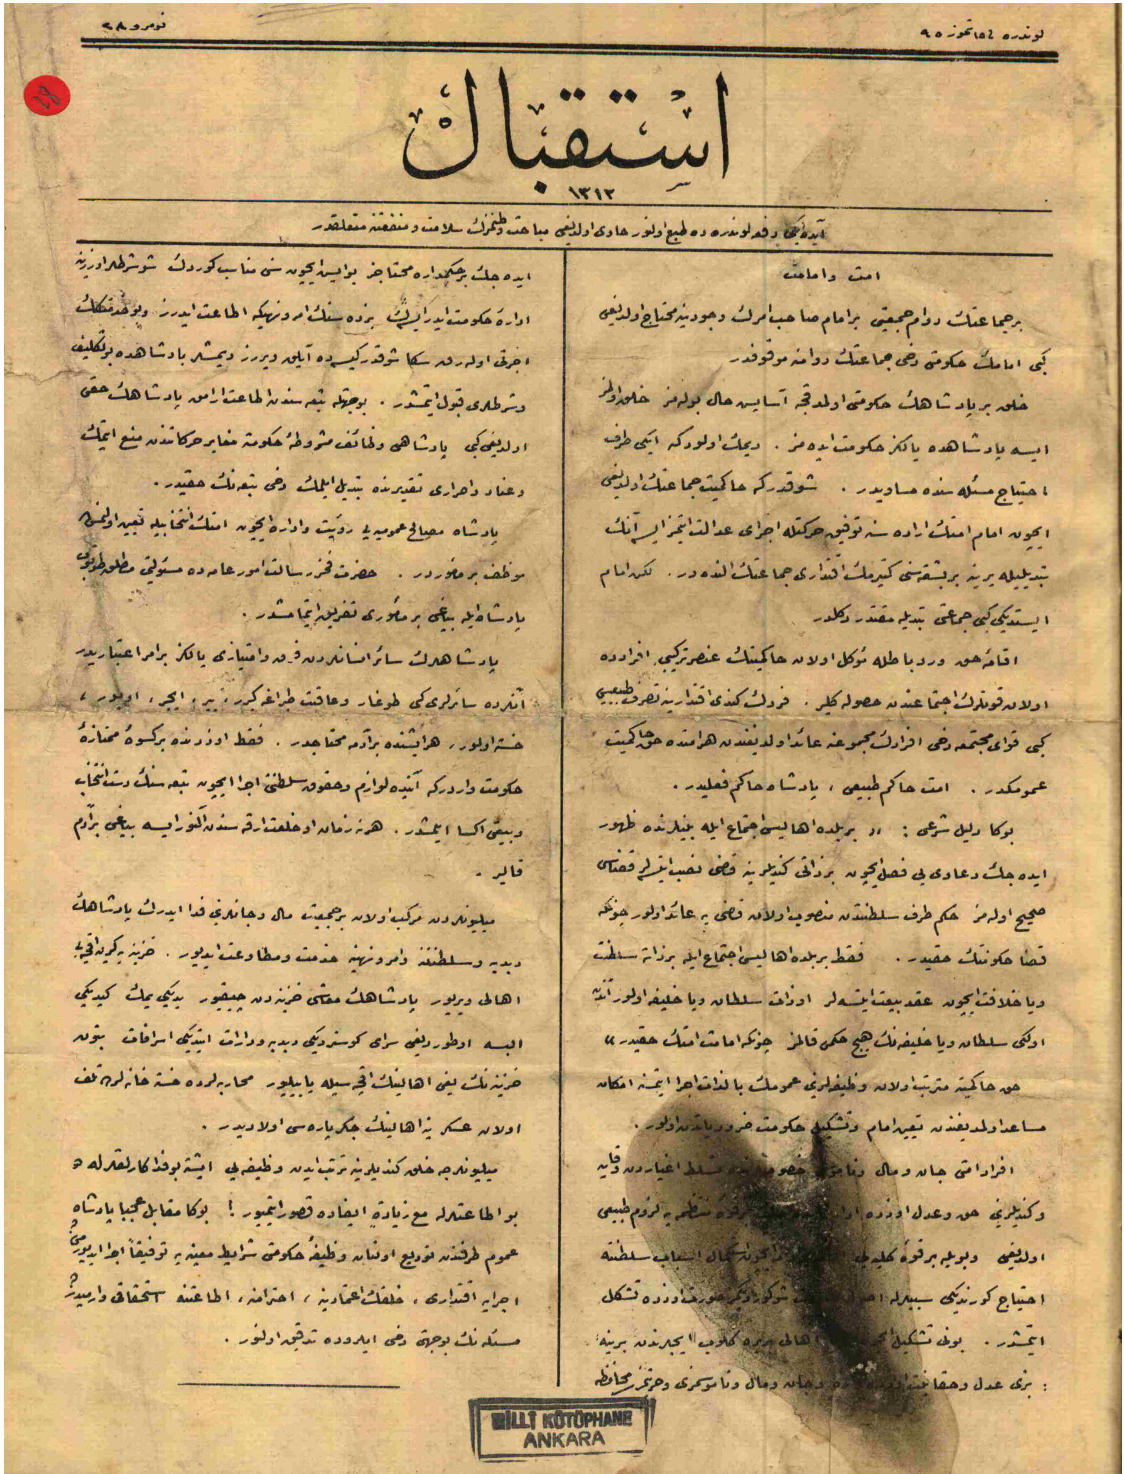 لوندره ١٥ تموز ٩٥
نومرو ٢٨
استقبال
١٣١٢
آيده ايكى دفعه لوندره ده طبع اولنور حاوى اولديغى مباحث وطنمزك سلامت و منفعتنه متعلقدر
امت و امامت
بر جماعتك دوام جمعيتى بر امام صاحب امرك وجودينه محتاج اولديغى
كبى امامك حكومتى دخى جماعتك دوامنه موقوفدر
خلق بر پادشاهك حكومتى اولمدقجه آسايش حال بوله مز خلق اولمز
ايسه پادشاهده يالكز حكومت ايده مز . ديمك اولور كه ايكى طرف
احتياج مسئله سنده مساويدر . شوقدر كه حاكميت جماعتك اولديغى
ايچون امام امتك اراده سنه توفيق حركتله اجراى عدالت ايتمز ايسه آنك
تبديليله يرينه بر بشقه سنى كتيرمك اقتدارى جماعتك النده در . لكن امام
ايستديكى كبى جماعتى تبديله مقتدر دكلدر
اقامهٔ حق و رد باطله موكل اولان حاكميتك عنصر تركيبى افرادده
اولان قوتلرك اجتماعندن حصوله كلير . فردك كندى اقتدارينه تصرف طبيعيسى
كبى قواى مجتمعه دخى افرادك مجموعنه عائد اولديغندن هر امتده حق حاكميت
عمومكدر . امت حاكم طبيعى ، پادشاه حاكم فعليدر .
بوكا دليل شرعى : « بر بلده اهاليسى اجتماع ايله بينلرنده ظهور
ايده جك دعاوى يى فصل ايچون بر ذاتى كنديلرينه قاضى نصب ايتسه لر قضاسى
صحيح اوله مز حكم طرف سلطنتدن منصوب اولان قاضى يه عائد اولور چونكه
قضا حكومتك حقيدر . فقط بر بلده اهاليسى اجتماع ايله بر ذاته سلطنت
ويا خلافت ايچون عقد بيعت ايتسه لر او ذات سلطان ويا خليفه اولور آندن
اولكى سلطان ويا خليفه نك هيچ حكمى قالمز چونكه امامت امتك حقيدر »
حق حاكميته مترتب اولان وظيفه لرينى عمومك بالذات اجرا ايتمسنه امكان
مساعد اولمديغندن تعيين امام و تشكيل حكومت ضرورياتدن اولور .
افراد امتى جان و مال و ناموس تسلط اغياردن وقايه
و كنديلرينى حق و عدل اوزره قوهٔ منتظمه يه لزوم طبيعى
اولديغى و بويله بر قوهٔ كليه يى استكمال اسباب سلطنته
احتياج كورنديكى سببله شو صورت اوزره تشكل
ايتمشدر . بونى تشكيل اهالى بر يره كلوب ايچلرندن برينه :
: بزى عدل و حقانيت و جان و مال و ناموسمزى و حريتمزى محافظه
ايده جك بر حكمداره محتاجز بو ايش ايچون سنى مناسب كوردك شو شرطلر اوزرينه
ادارهٔ حكومت ايدر ايسك بزده سنك امر و نهيكه اطاعت ايدرز و بو خدمتكك
اجرتى اوله رق سكا شوقدر كيسه ده آيلق ويررز ديمشلر پادشاهده بو تكليف
و شرطلرى قبول ايتمشدر . بو جهتله تبعه سندن اطاعت ارامق پادشاهك حقى
اولديغى كبى پادشاهى وظائف مشروطهٔ حكومته مغاير حركاتدن منع ايتمك
و عناد و اصرارى تقديرنده تبديل ايلمك دخى تبعه نك حقيدر .
پادشاه مصالح عموميه يى رؤيت و اداره ايچون امتك انتخابيله تعيين اولنمش
موظف بر مأموردر . حضرت فخر رسالت امور عامه ده مسئوليتى مطلق طوتوب
پادشاه ايله بياغى بر مأمورى تفريق ايتمامشدر .
پادشاهلرك سائر انسانلردن فرق و امتيازى يالكز بر امر اعتباريدر
آنلرده سائرلرى كبى طوغار و عاقبت طپراغه كيرر ، يير ، ايچر ، اويور ،
خسته اولور ، هر ايشنده بر آدمه محتاجدر . فقط اوزرنده بر كسوهٔ ممتازهٔ
حكومت واردر كه آنيده لوازم و حقوق سلطنتى اجرا ايچون تبعه سنك دست انتخاب
و بيعتى اكسا ايتمشدر . هر نه زمان او خلعت ارقه سندن آلنور ايسه بياغى بر آدم
قالير .
ميليونلردن مركب اولان بر جمعيت مال و جانلرينى فدا ايدرك پادشاهك
دبدبه و سلطنتنه و امر و نهينه خدمت و مطاوعت ايديور . خزينه يه كيرن اقچه يى
اهالى ويريور پادشاهك معاشى خزينه دن چيقيور يديكى يمك كيديكى
البسه اوطورديغى سراى كوسترديكى دبدبه و دارات ايتديكى اسرافات بتون
خزينه نك يعنى اهالينك اقچه سيله ياپيليور محاربه لرده خسته خانه لرده تلف
اولان عسكر ينه اهالينك جكرپاره سى اولاديدر .
ميليونلرجه خلق كنديلرينه ترتب ايدن وظيفه يى ايشته بو فداكارلقلرله و
بو اطاعتلرله مع زيادة ايفاده قصور ايتميور ! بوكا مقابل عجبا پادشاه
عموم طرفندن توديع اولنان وظيفهٔ حكومتى شرايط معينه يه توفيقاً اجرا ايديورمى
اجرايه اقتدارى ، خلقك اعتمادينه ، احترامنه ، اطاعتنه استحقاقى وارميدر
مسئله نك بو جهتى دخى ايلروده تدقيق اولنور .
MİLLÎ KÜTÜPHANE
ANKARA